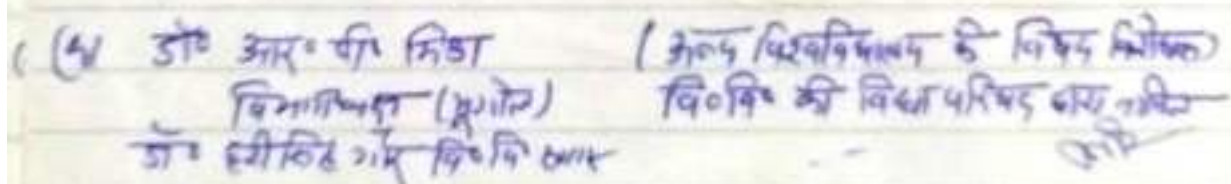 (4) डॉ० आर० पी० मिश्रा (अन्य विश्वविद्यालय के विषय विशेषज्ञ)
विभागाध्यक्ष (भूगोल) वि०वि० की विद्या परिषद द्वारा नामित
डॉ० हरीसिंह गौर वि०वि० सागर